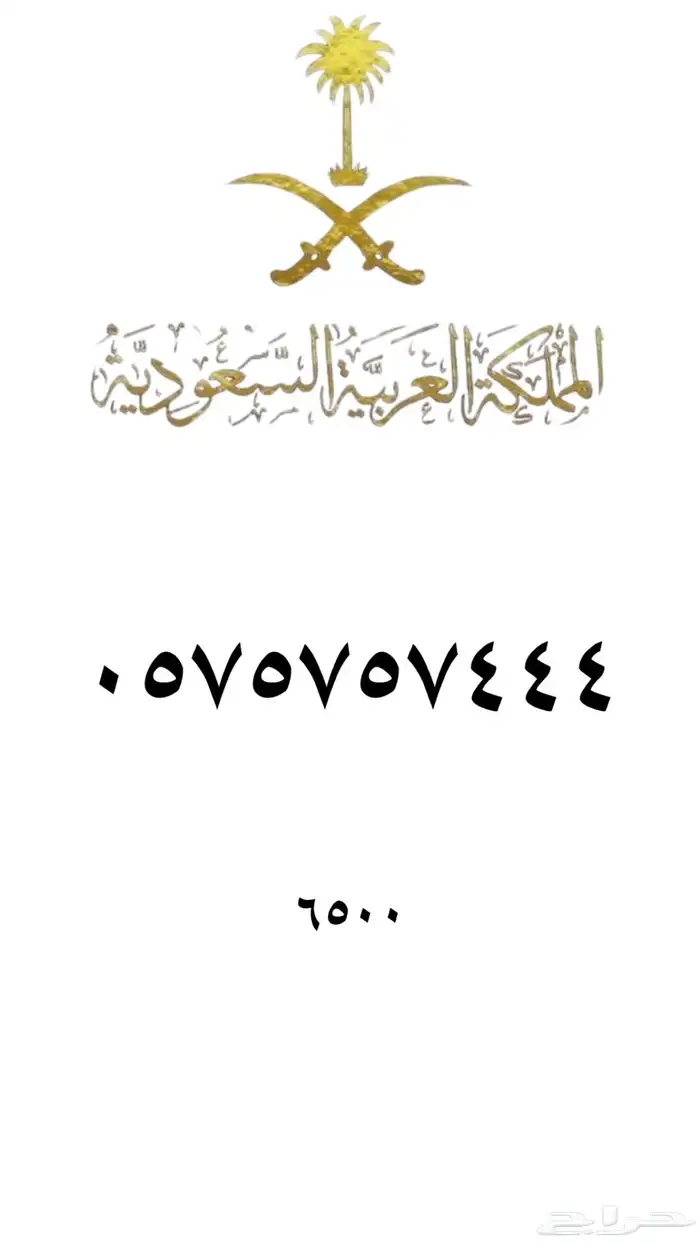 المملكة العربية السعودية
٠٥٧٥٧٥٧٤٤٤
٦٥٠٠
حراج